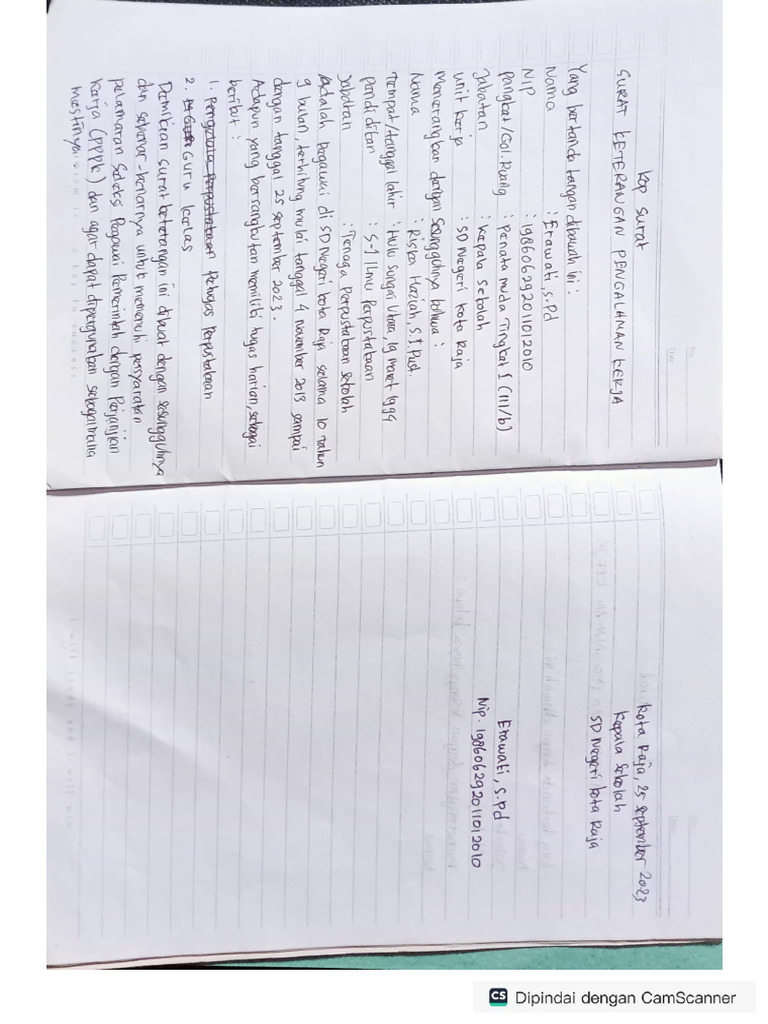 Kop Surat
SURAT KETERANGAN PENGALAMAN KERJA
Yang bertanda tangan dibawah ini :
Nama : Erawati, S.Pd
NIP : 198606292011012010
Pangkat/Gol.Ruang : Penata muda Tingkat I (III/b)
Jabatan : Kepala Sekolah
Unit Kerja : SD Negeri Kota Raja
Menerangkan dengan Sesungguhnya bahwa :
Nama : Riska Haziah, S.I.Pust.
Tempat/tanggal lahir : Hulu Sungai Utara, 19 maret 1994
Pendidikan : S-1 Ilmu Perpustakaan
Jabatan : Tenaga Perpustakaan Sekolah
Adalah Pegawai di SD Negeri Kota Raja selama 10 tahun
9 bulan, terhitung mulai tanggal 4 November 2013 sampai
dengan tanggal 25 September 2023.
Adapun yang bersangkutan memiliki tugas harian, sebagai
berikut :
1. Pengelola Perpustakaan Petugas Perpustakaan
2. Guru Kelas
Demikian surat keterangan ini dibuat dengan sesungguhnya
dan sebenar-benarnya untuk memenuhi persyaratan
pelamaran Seleksi Pegawai Pemerintah dengan Perjanjian
Kerja (PPPK) dan agar dapat dipergunakan sebagaimana
mestinya.
Kota Raja, 25 September 2023
Kepala Sekolah
SD Negeri Kota Raja
Erawati, S.Pd
Nip. 198606292011012010
CS Dipindai dengan CamScanner